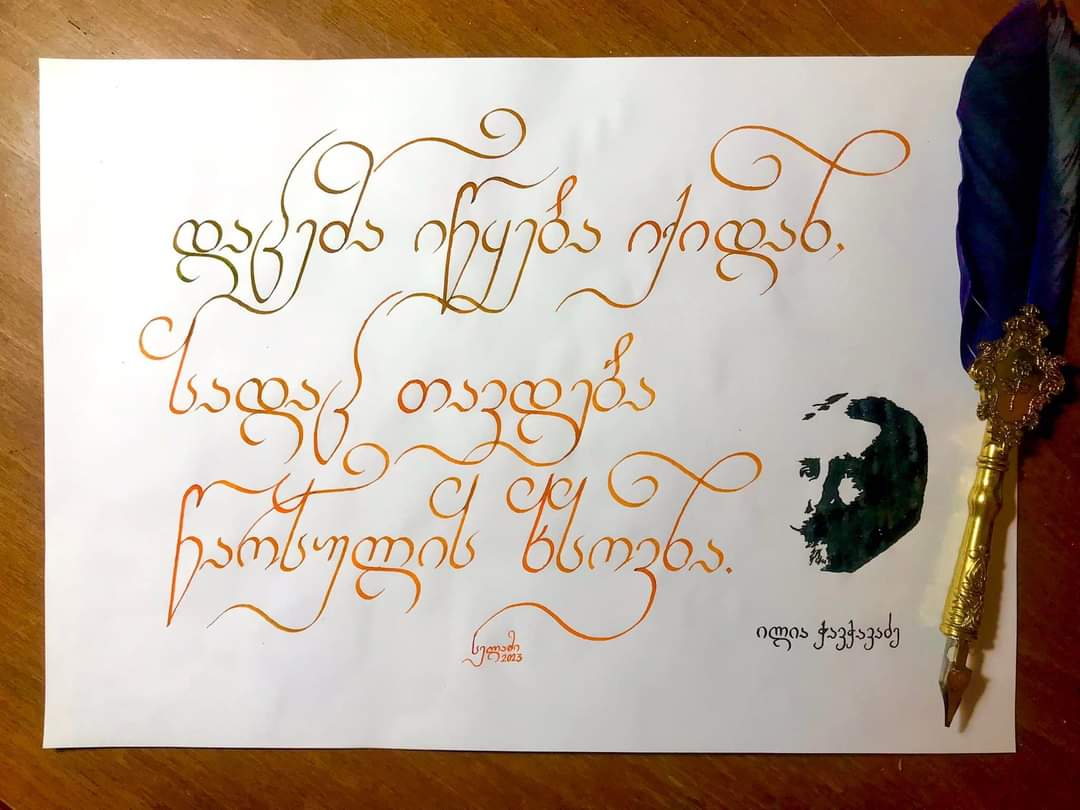 დაცემა იწყება იქიდან,
სადაც თავდება
წარსულის ხსოვნა.
ილია ჭავჭავაძე
2023